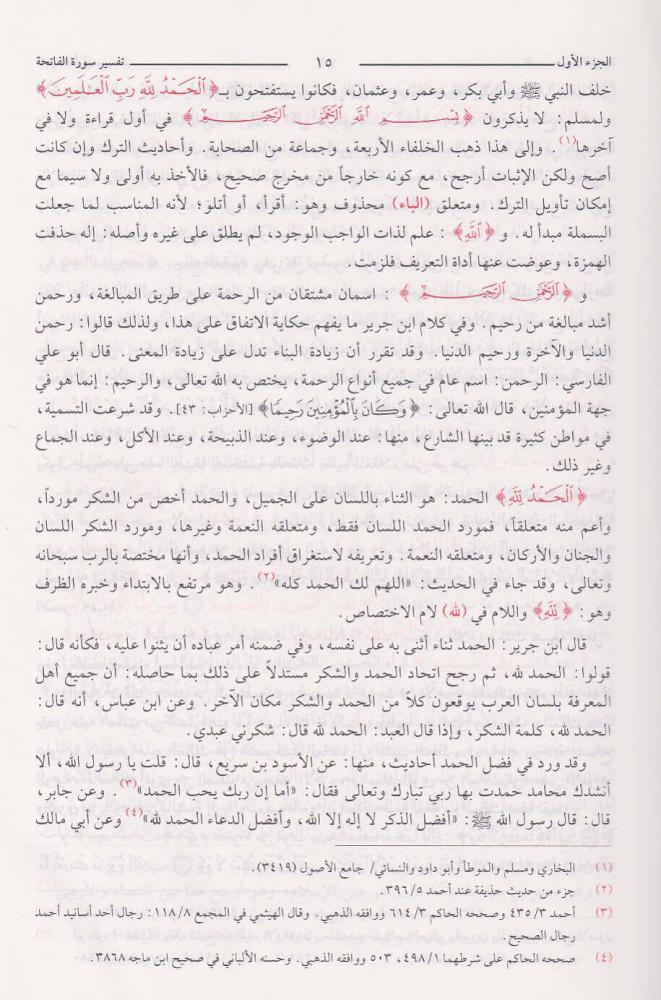 الجزء الأول ١٥ تفسير سورة الفاتحة
خلف النبي ﷺ وأبي بكر، وعمر، وعثمان، فكانوا يستفتحون بـ﴿ ٱلْحَمْدُ لِلَّهِ رَبِّ ٱلْعَـٰلَمِينَ ﴾
ولمسلم: لا يذكرون ﴿ بِسْمِ ٱللَّهِ ٱلرَّحْمَـٰنِ ٱلرَّحِيمِ ﴾ في أول قراءة ولا في
آخرها(١). وإلى هذا ذهب الخلفاء الأربعة، وجماعة من الصحابة. وأحاديث الترك وإن كانت
أصح ولكن الإثبات أرجح، مع كونه خارجاً من مخرج صحيح، فالأخذ به أولى ولا سيما مع
إمكان تأويل الترك. ومتعلق (الباء) محذوف وهو: أقرأ، أو أتلو؛ لأنه المناسب لما جعلت
البسملة مبدأ له. و ﴿ ٱللَّهِ ﴾ : علم لذات الواجب الوجود، لم يطلق على غيره وأصله: إله حذفت
الهمزة، وعوضت عنها أداة التعريف فلزمت.
و ﴿ ٱلرَّحْمَـٰنِ ٱلرَّحِيمِ ﴾ : اسمان مشتقان من الرحمة على طريق المبالغة، ورحمن
أشد مبالغة من رحيم. وفي كلام ابن جرير ما يفهم حكاية الاتفاق على هذا، ولذلك قالوا: رحمن
الدنيا والآخرة ورحيم الدنيا. وقد تقرر أن زيادة البناء تدل على زيادة المعنى. قال أبو علي
الفارسي: الرحمن: اسم عام في جميع أنواع الرحمة، يختص به الله تعالى، والرحيم: إنما هو في
جهة المؤمنين، قال الله تعالى: ﴿ وَكَانَ بِٱلْمُؤْمِنِينَ رَحِيمًا ﴾ [الأحزاب: ٤٣]. وقد شرعت التسمية،
في مواطن كثيرة قد بينها الشارع، منها: عند الوضوء، وعند الذبيحة، وعند الأكل، وعند الجماع
وغير ذلك.
﴿ ٱلْحَمْدُ لِلَّهِ ﴾ الحمد: هو الثناء باللسان على الجميل، والحمد أخص من الشكر مورداً،
وأعم منه متعلقاً، فمورد الحمد اللسان فقط، ومتعلقه النعمة وغيرها، ومورد الشكر اللسان
والجنان والأركان، ومتعلقه النعمة. وتعريفه لاستغراق أفراد الحمد، وأنها مختصة بالرب سبحانه
وتعالى، وقد جاء في الحديث: «اللهم لك الحمد كله»(٢). وهو مرتفع بالابتداء وخبره الظرف
وهو: ﴿ لِلَّهِ ﴾ واللام في (لله) لام الاختصاص.
قال ابن جرير: الحمد ثناء أثنى به على نفسه، وفي ضمنه أمر عباده أن يثنوا عليه، فكأنه قال:
قولوا: الحمد لله، ثم رجح اتحاد الحمد والشكر مستدلاً على ذلك بما حاصله: أن جميع أهل
المعرفة بلسان العرب يوقعون كلاً من الحمد والشكر مكان الآخر. وعن ابن عباس، أنه قال:
الحمد لله، كلمة الشكر، وإذا قال العبد: الحمد لله قال: شكرني عبدي.
وقد ورد في فضل الحمد أحاديث، منها: عن الأسود بن سريع، قال: قلت يا رسول الله، ألا
أنشدك محامد حمدت بها ربي تبارك وتعالى فقال: «أما إن ربك يحب الحمد»(٣). وعن جابر،
قال: قال رسول الله ﷺ: «أفضل الذكر لا إله إلا الله، وأفضل الدعاء الحمد لله»(٤) وعن أبي مالك
(١) البخاري ومسلم والموطأ وأبو داود والنسائي/ جامع الأصول (٣٤١٩).
(٢) جزء من حديث حذيفة عند أحمد ٣٩٦/٥.
(٣) أحمد ٤٣٥/٣ وصححه الحاكم ٦١٤/٣ ووافقه الذهبي. وقال الهيثمي في المجمع ١١٨/٨: رجال أحد أسانيد أحمد
رجال الصحيح.
(٤) صححه الحاكم على شرطهما ٤٩٨/١، ٥٠٣ ووافقه الذهبي. وحسنه الألباني في صحيح ابن ماجه ٣٨٦٨.